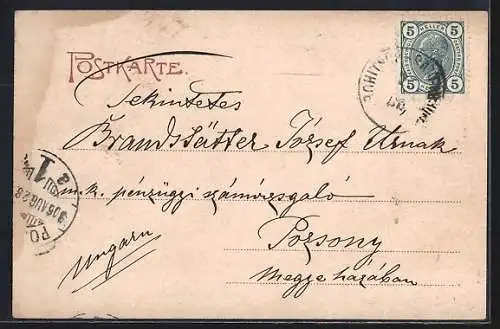 POSTKARTE.
5 HELLER 5
5 5
Tekintetes
Brandstätter József Urnak
m. k. pénzügyi számvizsgáló
Pozsony
Megye házában
Ungarn
1
AUG. 28